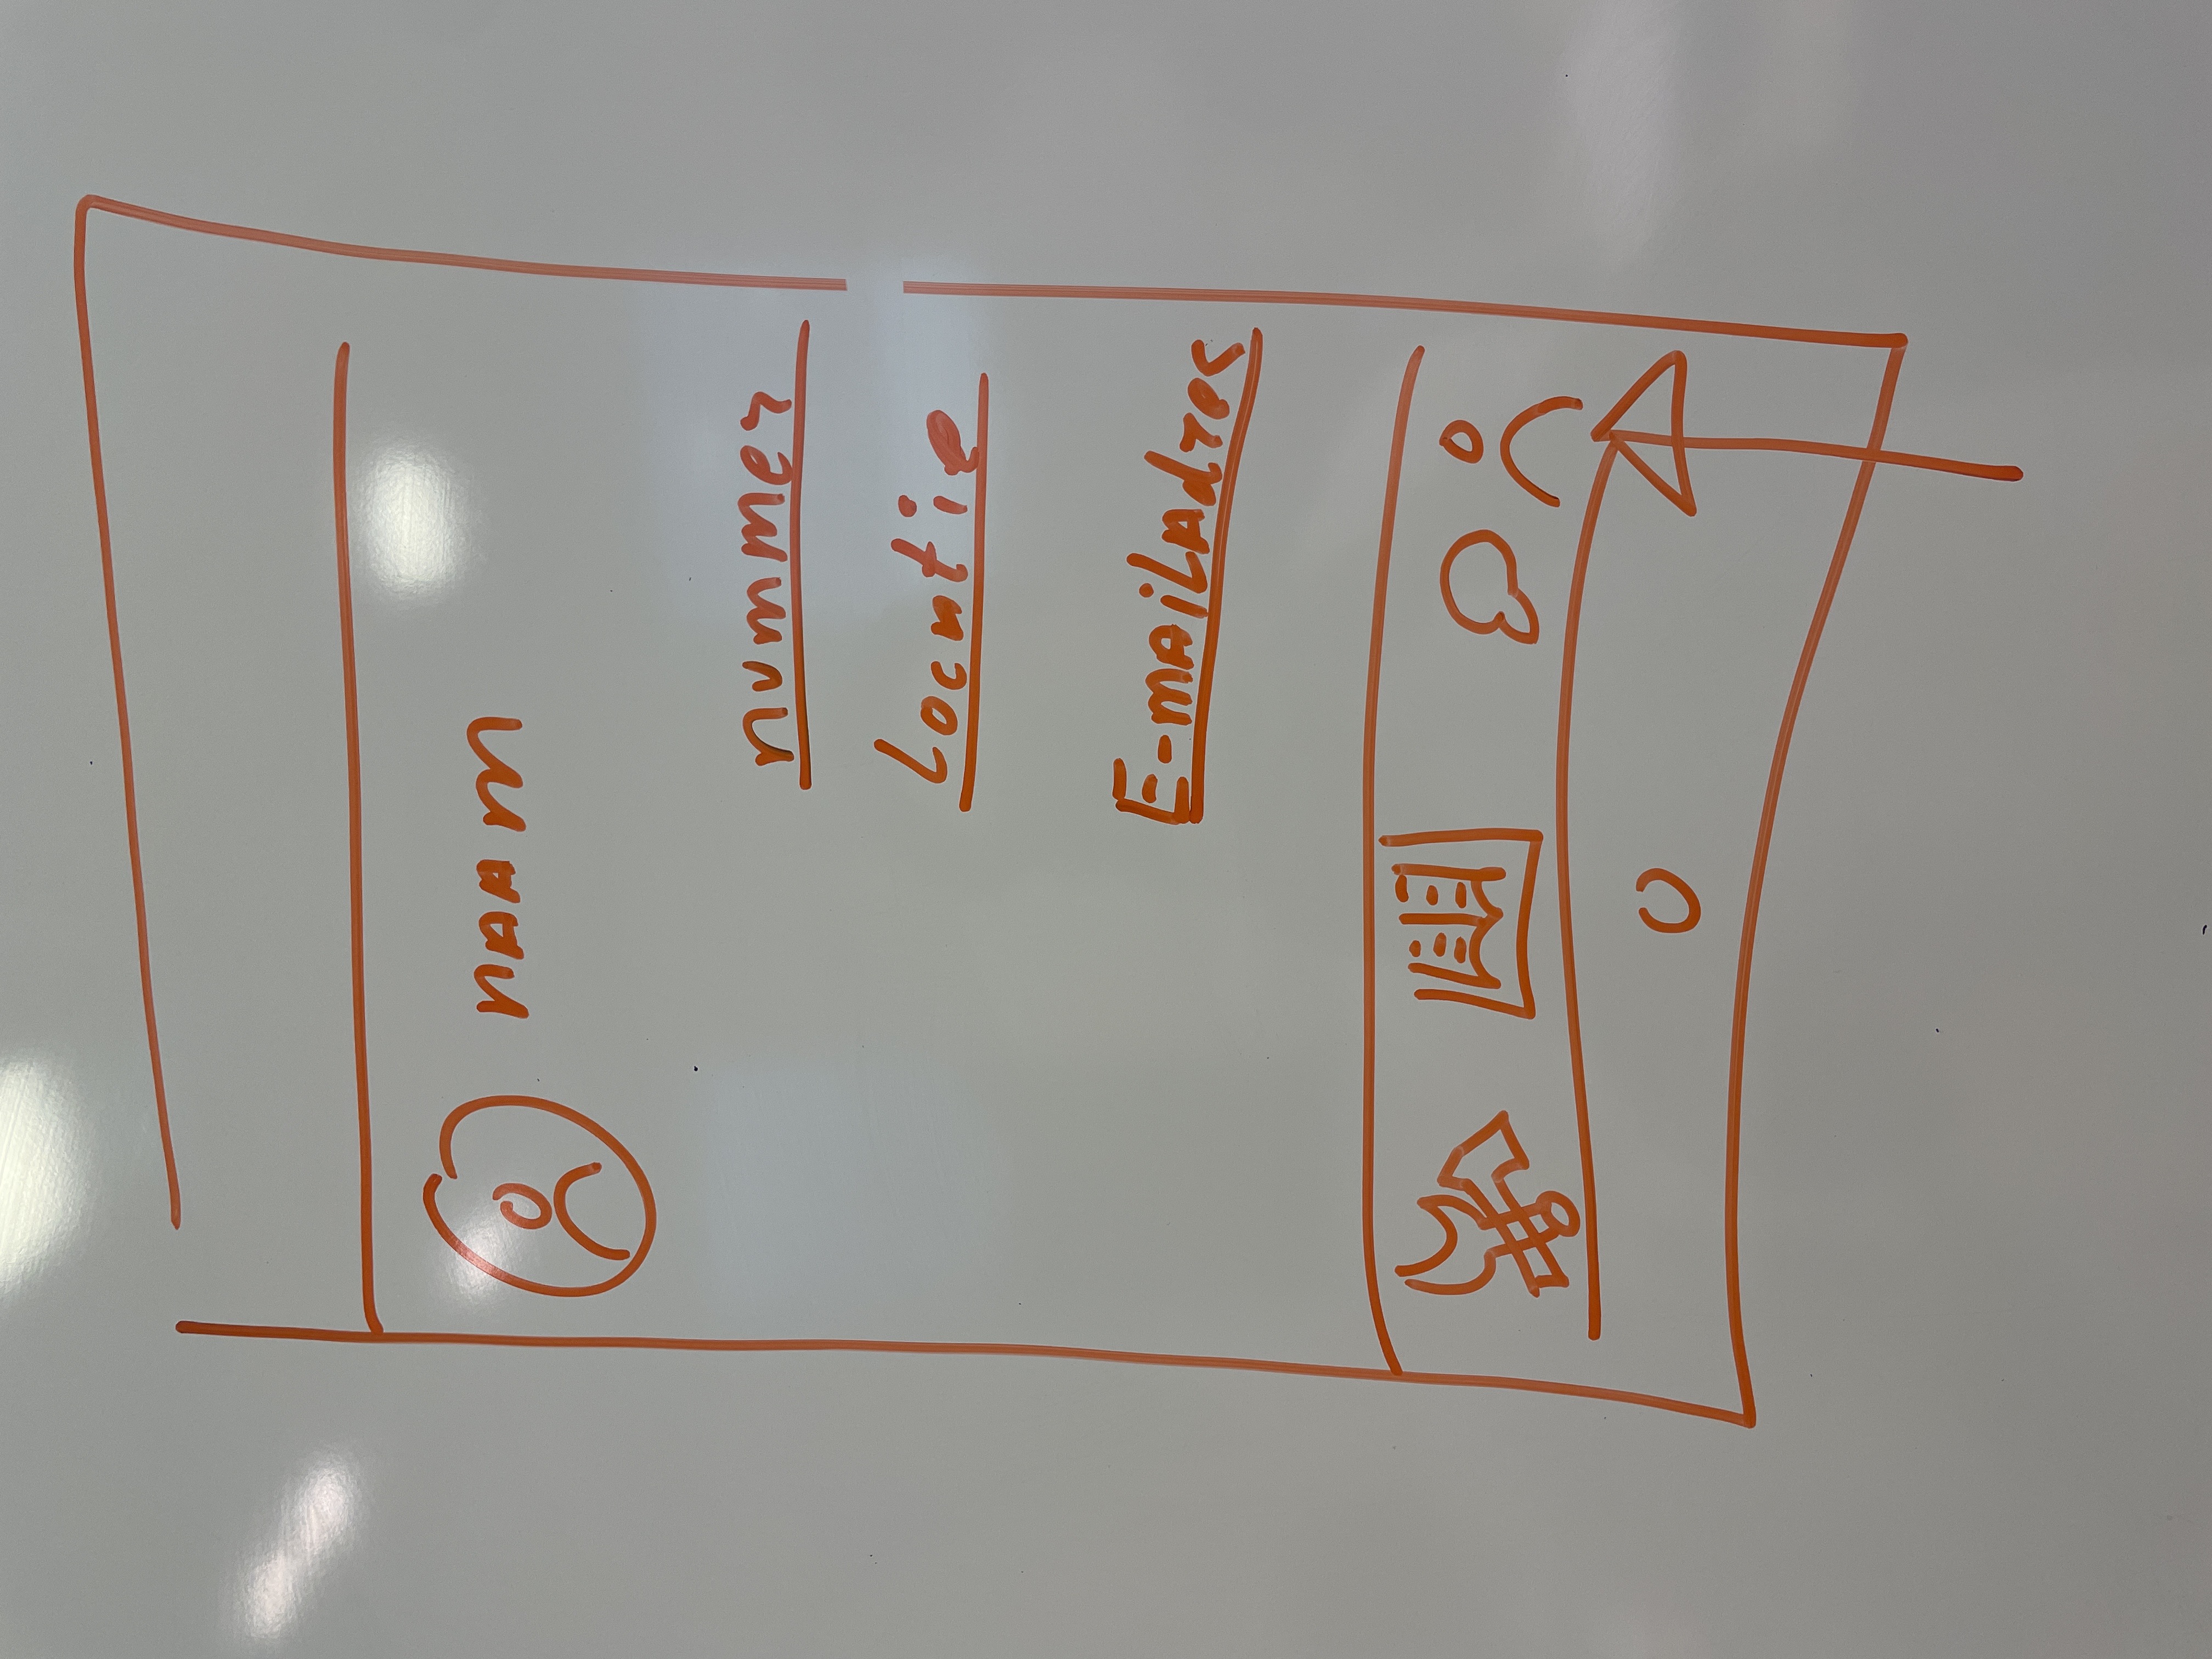 naam
nummer
Locatie
E-mailadres